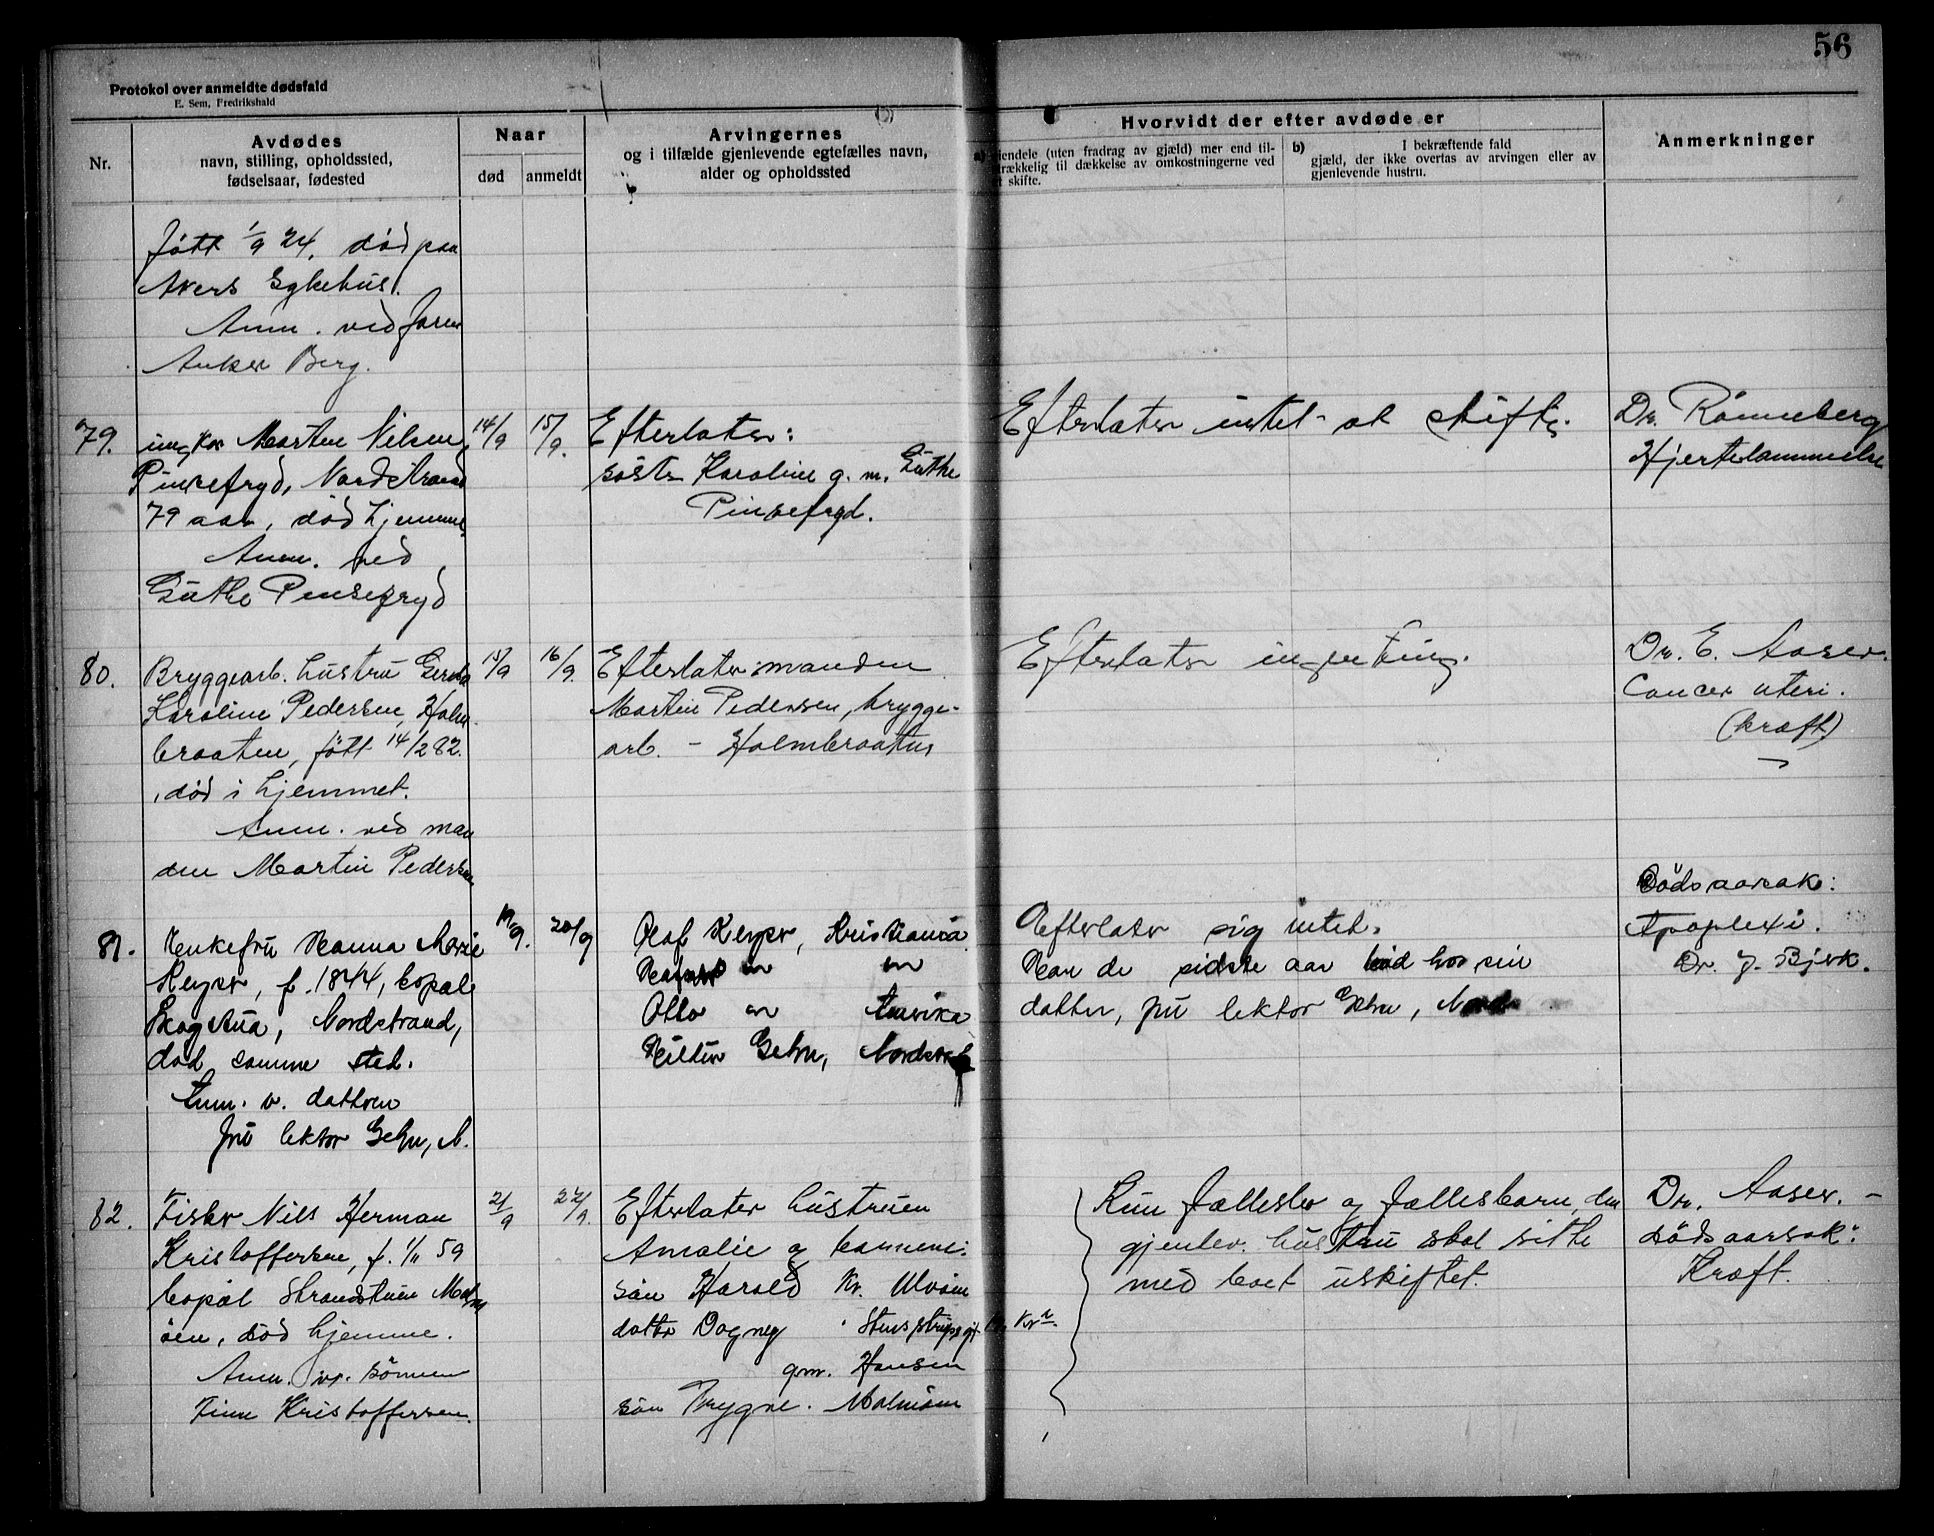 56
Protokol over anmeldte dødsfald
E. Sem, Fredrikshald
Nr.
Avdødes
navn, stilling, opholdssted,
fødselsaar, fødested
Naar
død
anmeldt
Arvingernes
og i tilfælde gjenlevende egtefælles navn,
alder og opholdssted
Hvorvidt der efter avdøde er
a) eiendele (uten fradrag av gjæld) mer end til-
trækkelig til dækkelse av omkostningerne ved
et skifte.
b) I bekræftende fald
gjæld, der ikke overtas av arvingen eller av
gjenlevende hustru.
Anmerkninger
født 1/9 24, død paa
Akers Sykehus.
Anm. ved faren
Anker Berg.
79.
ungkar Morten Nilsen,
Pinsefryd, Nordstrand
79 aar, død hjemme,
Anm. ved
Güthe Pinsefryd
14/9
15/9.
Efterlater:
søster Karoline g. m. Güthe
Pinsefryd.
Efterlater intet at skifte.
Dr. Rønneberg
Hjertelammelse
80.
Bryggearb. hustru
Karoline Pedersen, Holm-
braaten, født 14/2 82.
, død i hjemmet.
Anm. ved man
den Martin Pedersen
15/9
16/9.
Efterlater: manden
Martin Pedersen, brygge-
arb. - Holmbraaten
Efterlater ingenting.
Dr. E. Aaser.
Cancer uteri.
(kræft)
81.
Enkefru Hanna Marie
Keyser, f. 1844, bopæl
Skogstua, Nordstrand,
død samme sted.
Anm. v. datteren
fru lektor Gehn, N.
19/9.
20/9
Olaf Keyser, Kristiania
Otto " Amerika
Gehn, Nordstrand
Efterlater sig intet.
Har de sidste aar hos sin
datter, fru lektor Gehn, Nords
Dødsaarsak:
Apoplexi.
Dr. J. Bjerk.
82.
Fisker Nils Herman
Kristoffersen, f. 1/11 59
bopæl Strandstuen Malm
øen, død hjemme.
Anm. v. sønnen
Finn Kristoffersen.
21/9
22/9.
Efterlater hustruen
Amalie og barnene:
søn Harald Kr. Ulvøen
datter Dagney
gm. Hansen
søn Trygve. Malmøen
Kun fælleseie og fællesbarn, den
gjenlev. hustru skal sitte
med boet uskiftet.
Dr. Aaser. -
dødsaarsak:
Kræft.